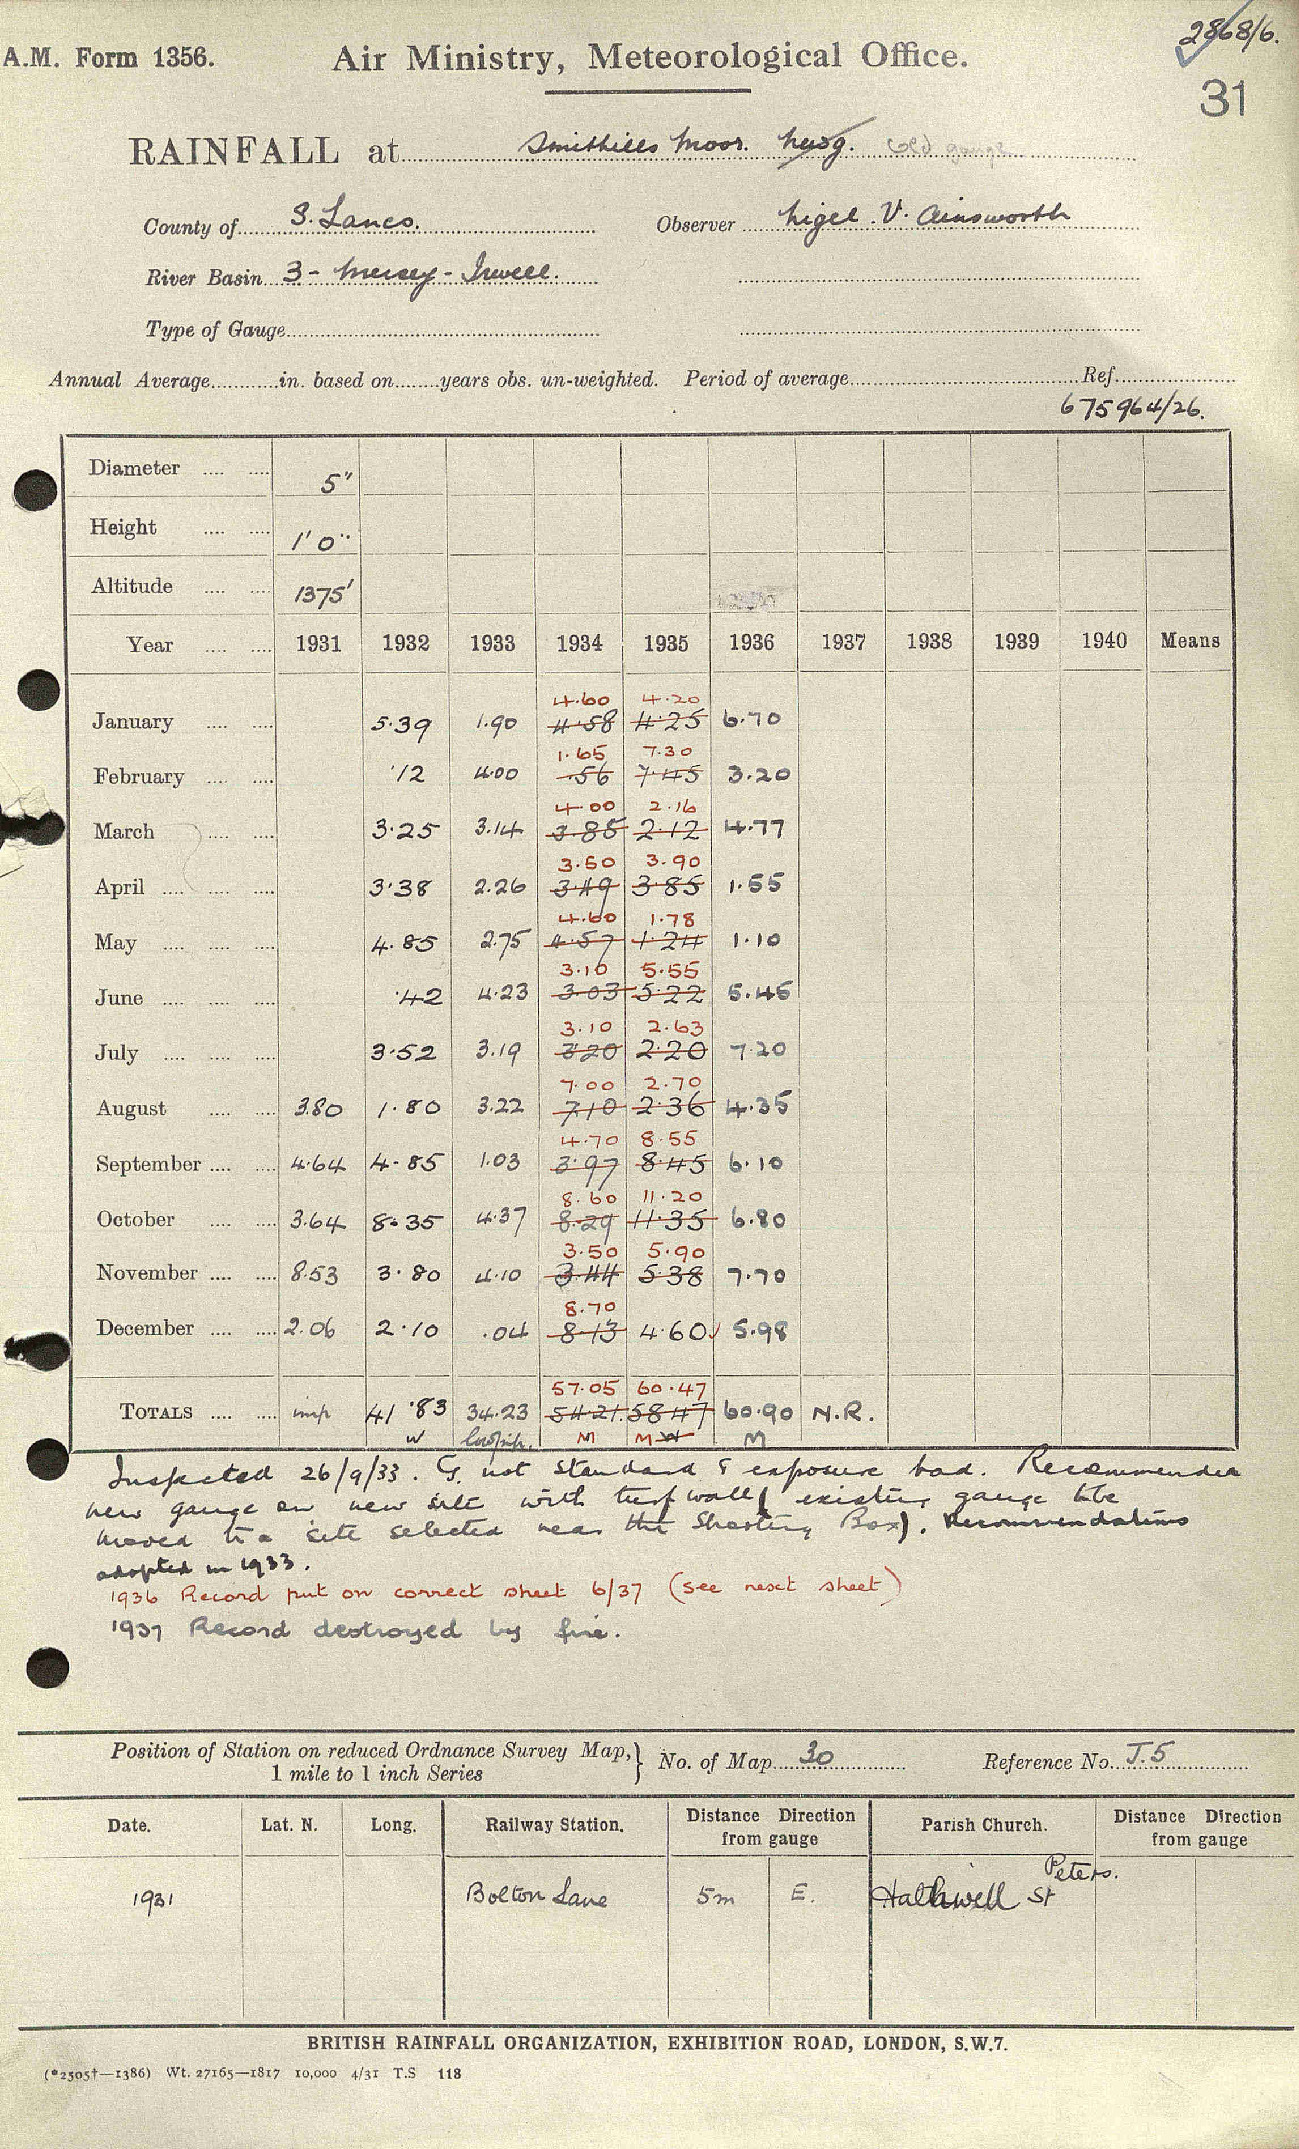 2868/6.
A.M. Form 1356. Air Ministry, Meteorological Office.
31
RAINFALL at Smithills Moor. No 9. Old gauge
County of S. Lancs. Observer Nigel V. Ainsworth
River Basin 3 - Mersey - Irwell.
Type of Gauge
Annual Average in. based on years obs. un-weighted. Period of average Ref.
675964/26.
Diameter 5"
Height 1' 0"
Altitude 1375'
Year 1931 1932 1933 1934 1935 1936 1937 1938 1939 1940 Means
4.60 4.20
January 5.39 1.90 4.58 4.25 6.70
1.65 7.30
February .12 4.00 .56 7.45 3.20
4.00 2.16
March 3.25 3.14 3.85 2.12 4.77
3.50 3.90
April 3.38 2.26 3.49 3.85 1.55
4.60 1.78
May 4.85 2.75 4.57 1.24 1.10
3.10 5.55
June .42 4.23 3.03 5.22 5.45
3.10 2.63
July 3.52 3.19 3.20 2.20 7.20
7.00 2.70
August 3.80 1.80 3.22 7.10 2.36 4.35
4.70 8.55
September 4.64 4.85 1.03 3.97 8.45 6.10
8.60 11.20
October 3.64 8.35 4.37 8.29 11.35 6.80
3.50 5.90
November 8.53 3.80 4.10 3.44 5.38 7.70
8.70
December 2.06 2.10 .04 8.13 4.60 5.98
57.05 60.47
TOTALS imp 41.83 34.23 54.21 58.47 60.90 N.R.
W M M W M
Inspected 26/9/33. G. not standard & exposure bad. Recommended
new gauge on new site with turf wall (existing gauge to be
moved to a site selected near the Shooting Box). Recommendations
adopted in 1933.
1936 Record put on correct sheet 6/37 (see next sheet)
1937 Record destroyed by fire.
Position of Station on reduced Ordnance Survey Map, } No. of Map 30 Reference No. J.5
1 mile to 1 inch Series
Date. Lat. N. Long. Railway Station. Distance Direction from gauge Parish Church. Distance Direction from gauge
1931 Bolton Lane 5m E. Halliwell St Peters.
BRITISH RAINFALL ORGANIZATION, EXHIBITION ROAD, LONDON, S.W.7.
(*2505†—1386) Wt. 27165—1817 10,000 4/31 T.S 118